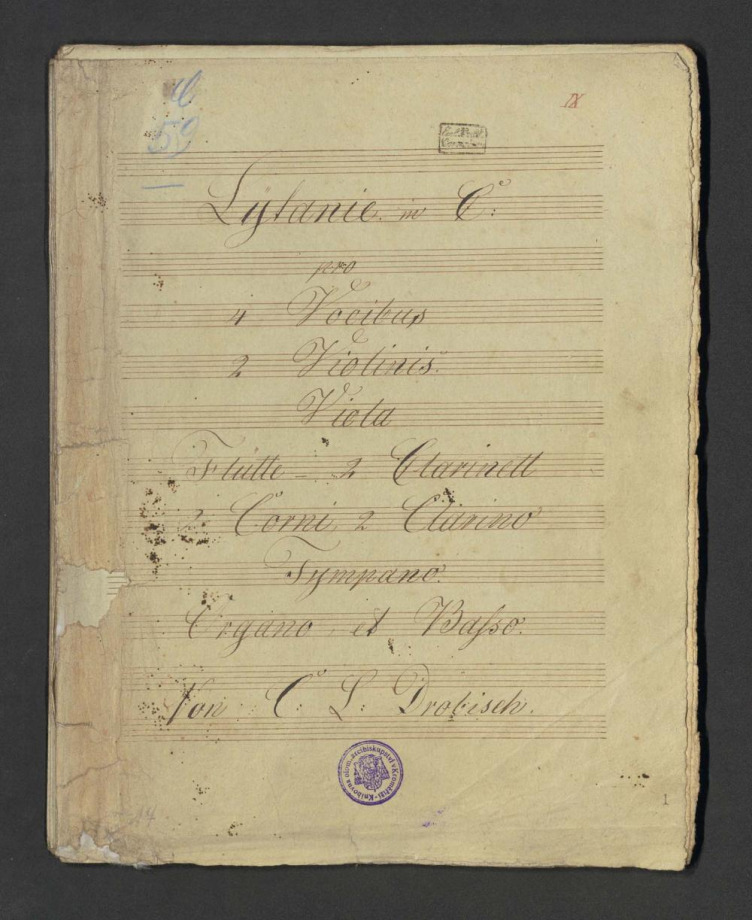 59
IX
Lÿtanie in C:
pro
4 Vocibus
2 Violinis.
Viola
Flütte – 2 Clarinett
2 Corni 2 Clarino
Tympano.
Organo et Basso.
Von C: L: Drobisch.
Knihovna olom. arcibiskupství v Kroměříži
1